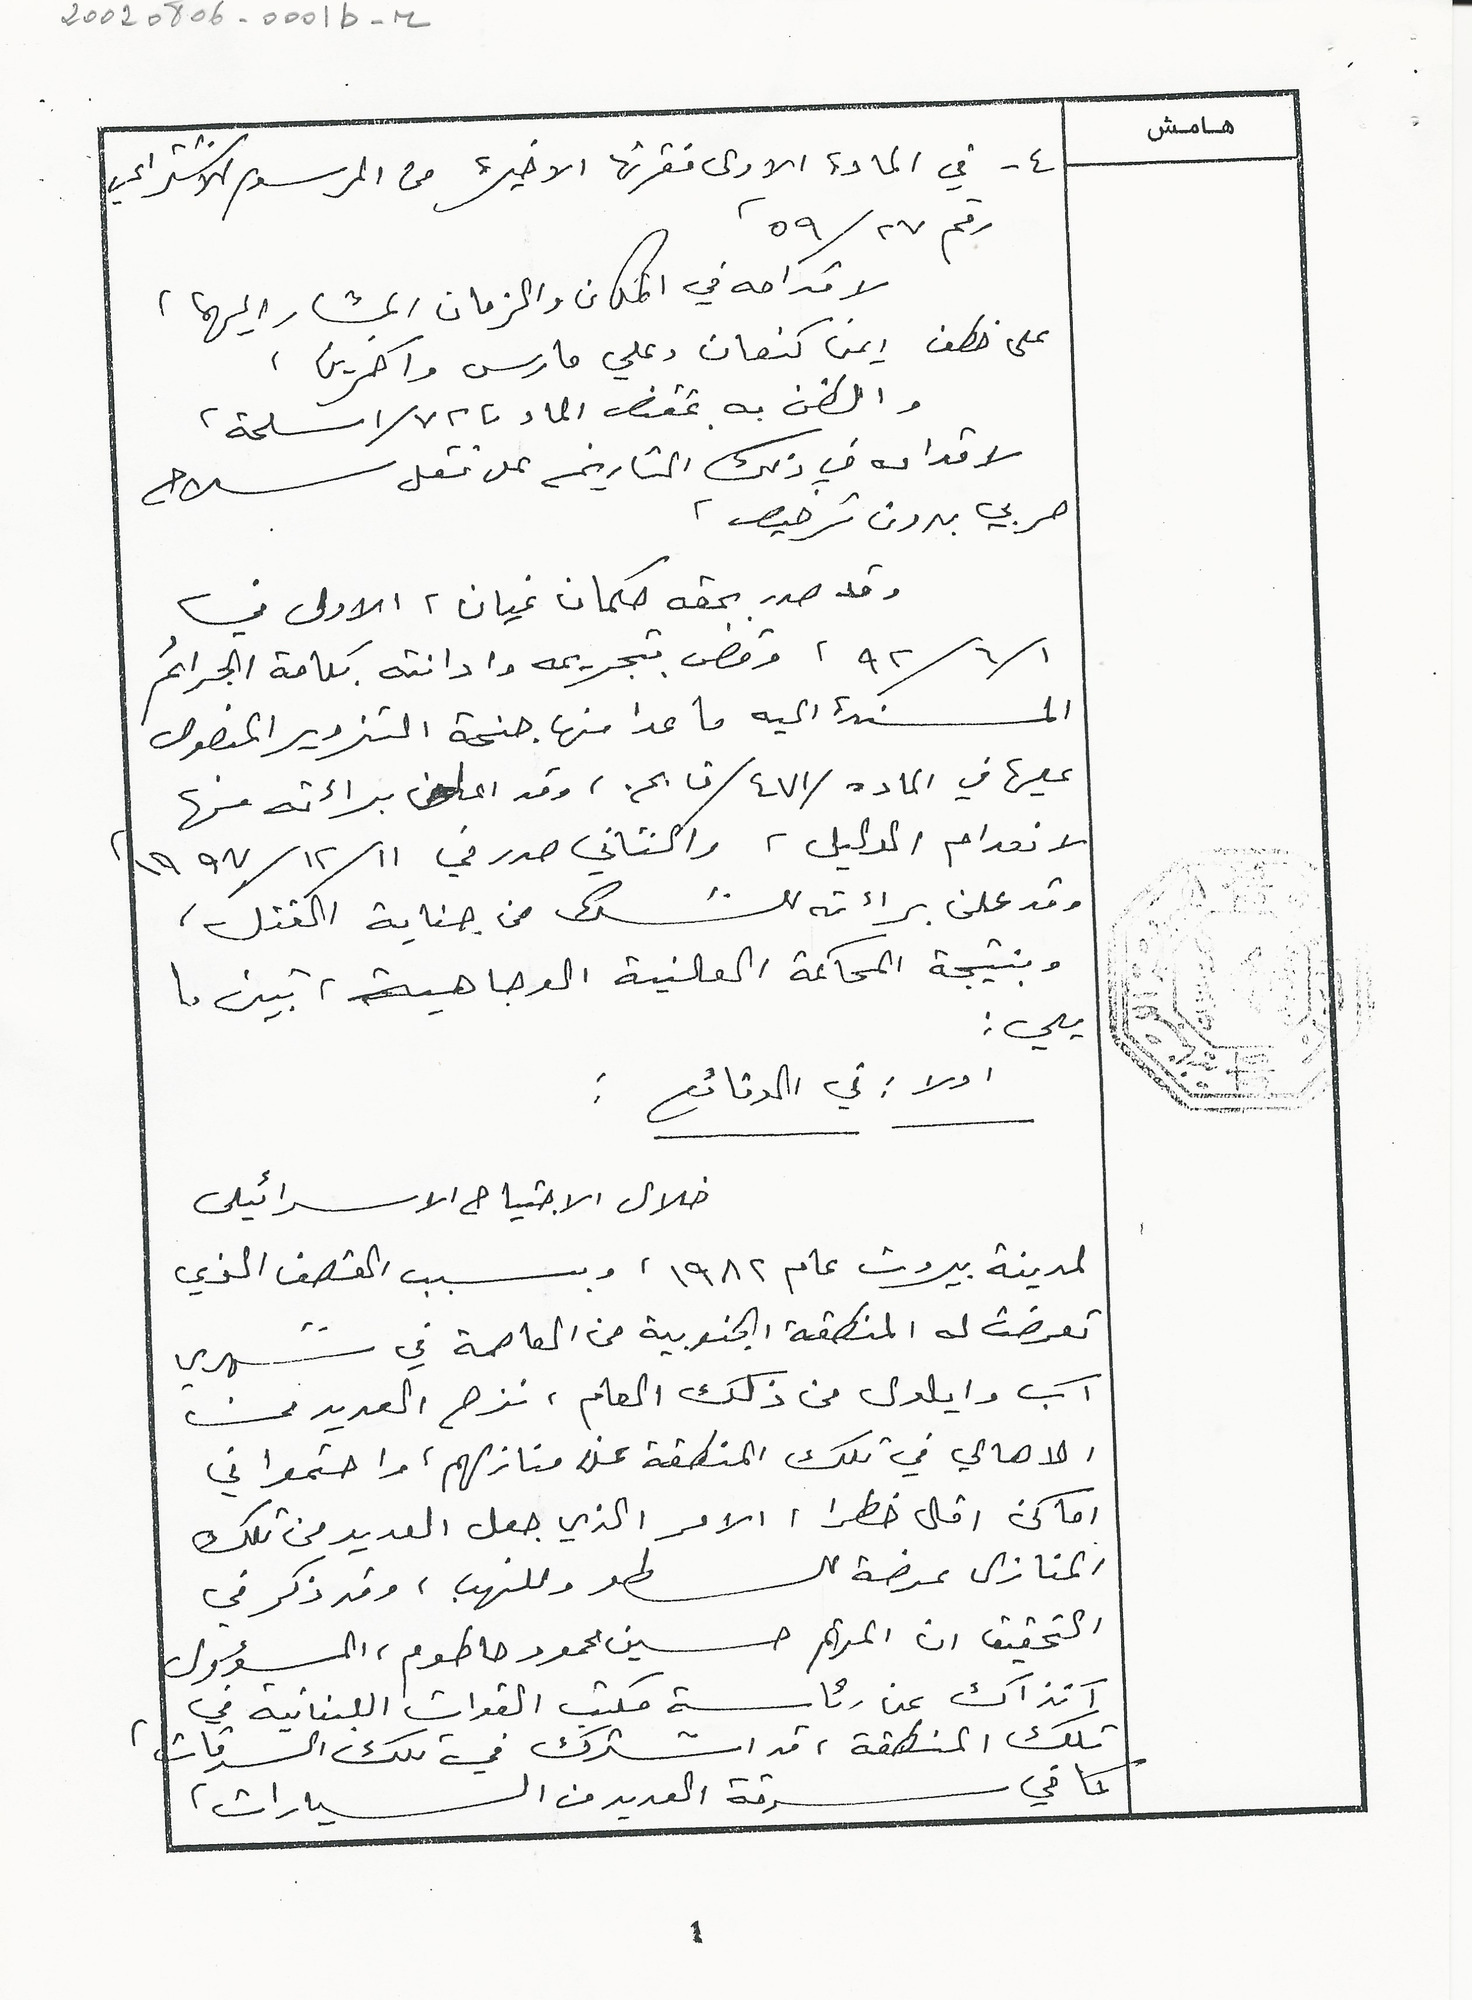 20020806-0001b-r
هامش
٤- في المادة الاولى فقرتها الاخيرة من المرسوم الاشتراعي
رقم ٢٧/٥٩،
لاقدامه في المكان والزمان المشار اليهما،
على خطف ايمن كنعان وعلي فارس وآخرين،
والظن به بمقتضى المادة ٧٢/اسلحة،
لاقدامه في ذلك التاريخ على نقل سلاح
حربي بدون ترخيص،
وقد صدر بحقه حكمان غيابيان، الاول في
١/٦/٩٢، وقضى بتجريمه وادانته بكافة الجرائم
المسندة اليه ما عدا منها جنحة التزوير المنصوص
عليها في المادة /٤٧١/ وقد اعلن براءته منها
لانعدام الدليل، والثاني صدر في ١١/١٢/١٩٩٧،
وقد علن براءته للشك من جناية القتل،
وبنتيجة المحاكمة العلنية الوجاهية، تبين ما
يلي:
اولا: في الوقائع:
خلال الاجتياح الاسرائيلي
لمدينة بيروت عام ١٩٨٢، وبسبب القصف الذي
تعرضت له المنطقة الجنوبية من العاصمة في شهري
آب وايلول من ذلك العام، نزح العديد من
الاهالي في تلك المنطقة عن منازلهم، واحتموا في
اماكن اقل خطرا، الامر الذي جعل العديد من تلك
المنازل عرضة للسطو وللنهب، وقد ذكر في
التحقيق ان المتهم حسين محمود حاطوم، المسؤول
آنذاك عن رئاسة مكتب القوات اللبنانية في
تلك المنطقة، قد اشترك في تلك السرقات،
كما في سرقة العديد من السيارات،
1